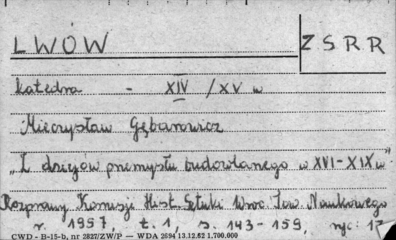 LWÓW
ZSRR
katedra - XIV / XV w
Mieczysław Gębarowicz
"Z dziejów przemysłu budowlanego w XVI-XIX w"
Rozprawy Komisji Hist. Sztuki Wroc. Tow. Naukowego
r. 1957, t. 1, s. 143-159, ryc: 17
CWD - B-15-b, nr 2827/ZW/P — WDA 2694 13.12.62 1.700.000